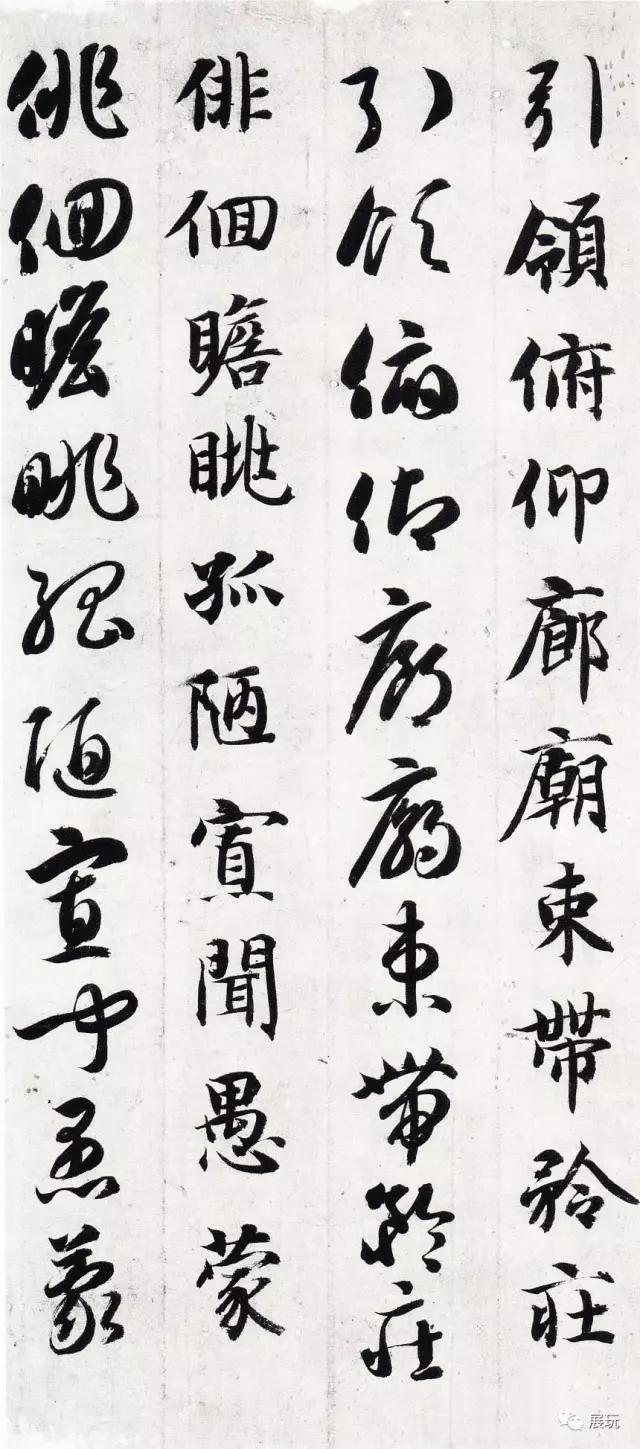 引領俯仰廊廟束帶矜莊
引領俯仰廊廟束帶矜莊
俳佪瞻眺孤陋寡聞愚蒙
俳佪瞻眺孤陋寡聞愚蒙
展玩